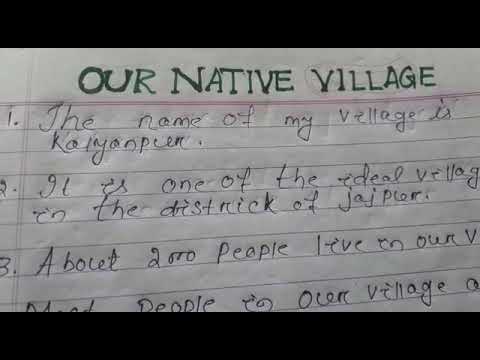 OUR NATIVE VILLAGE
1. The name of my village is
Kalyanpur.
2. It is one of the ideal villag
in the district of jajpur.
3. About 2000 people live in our v
Most people in our village a